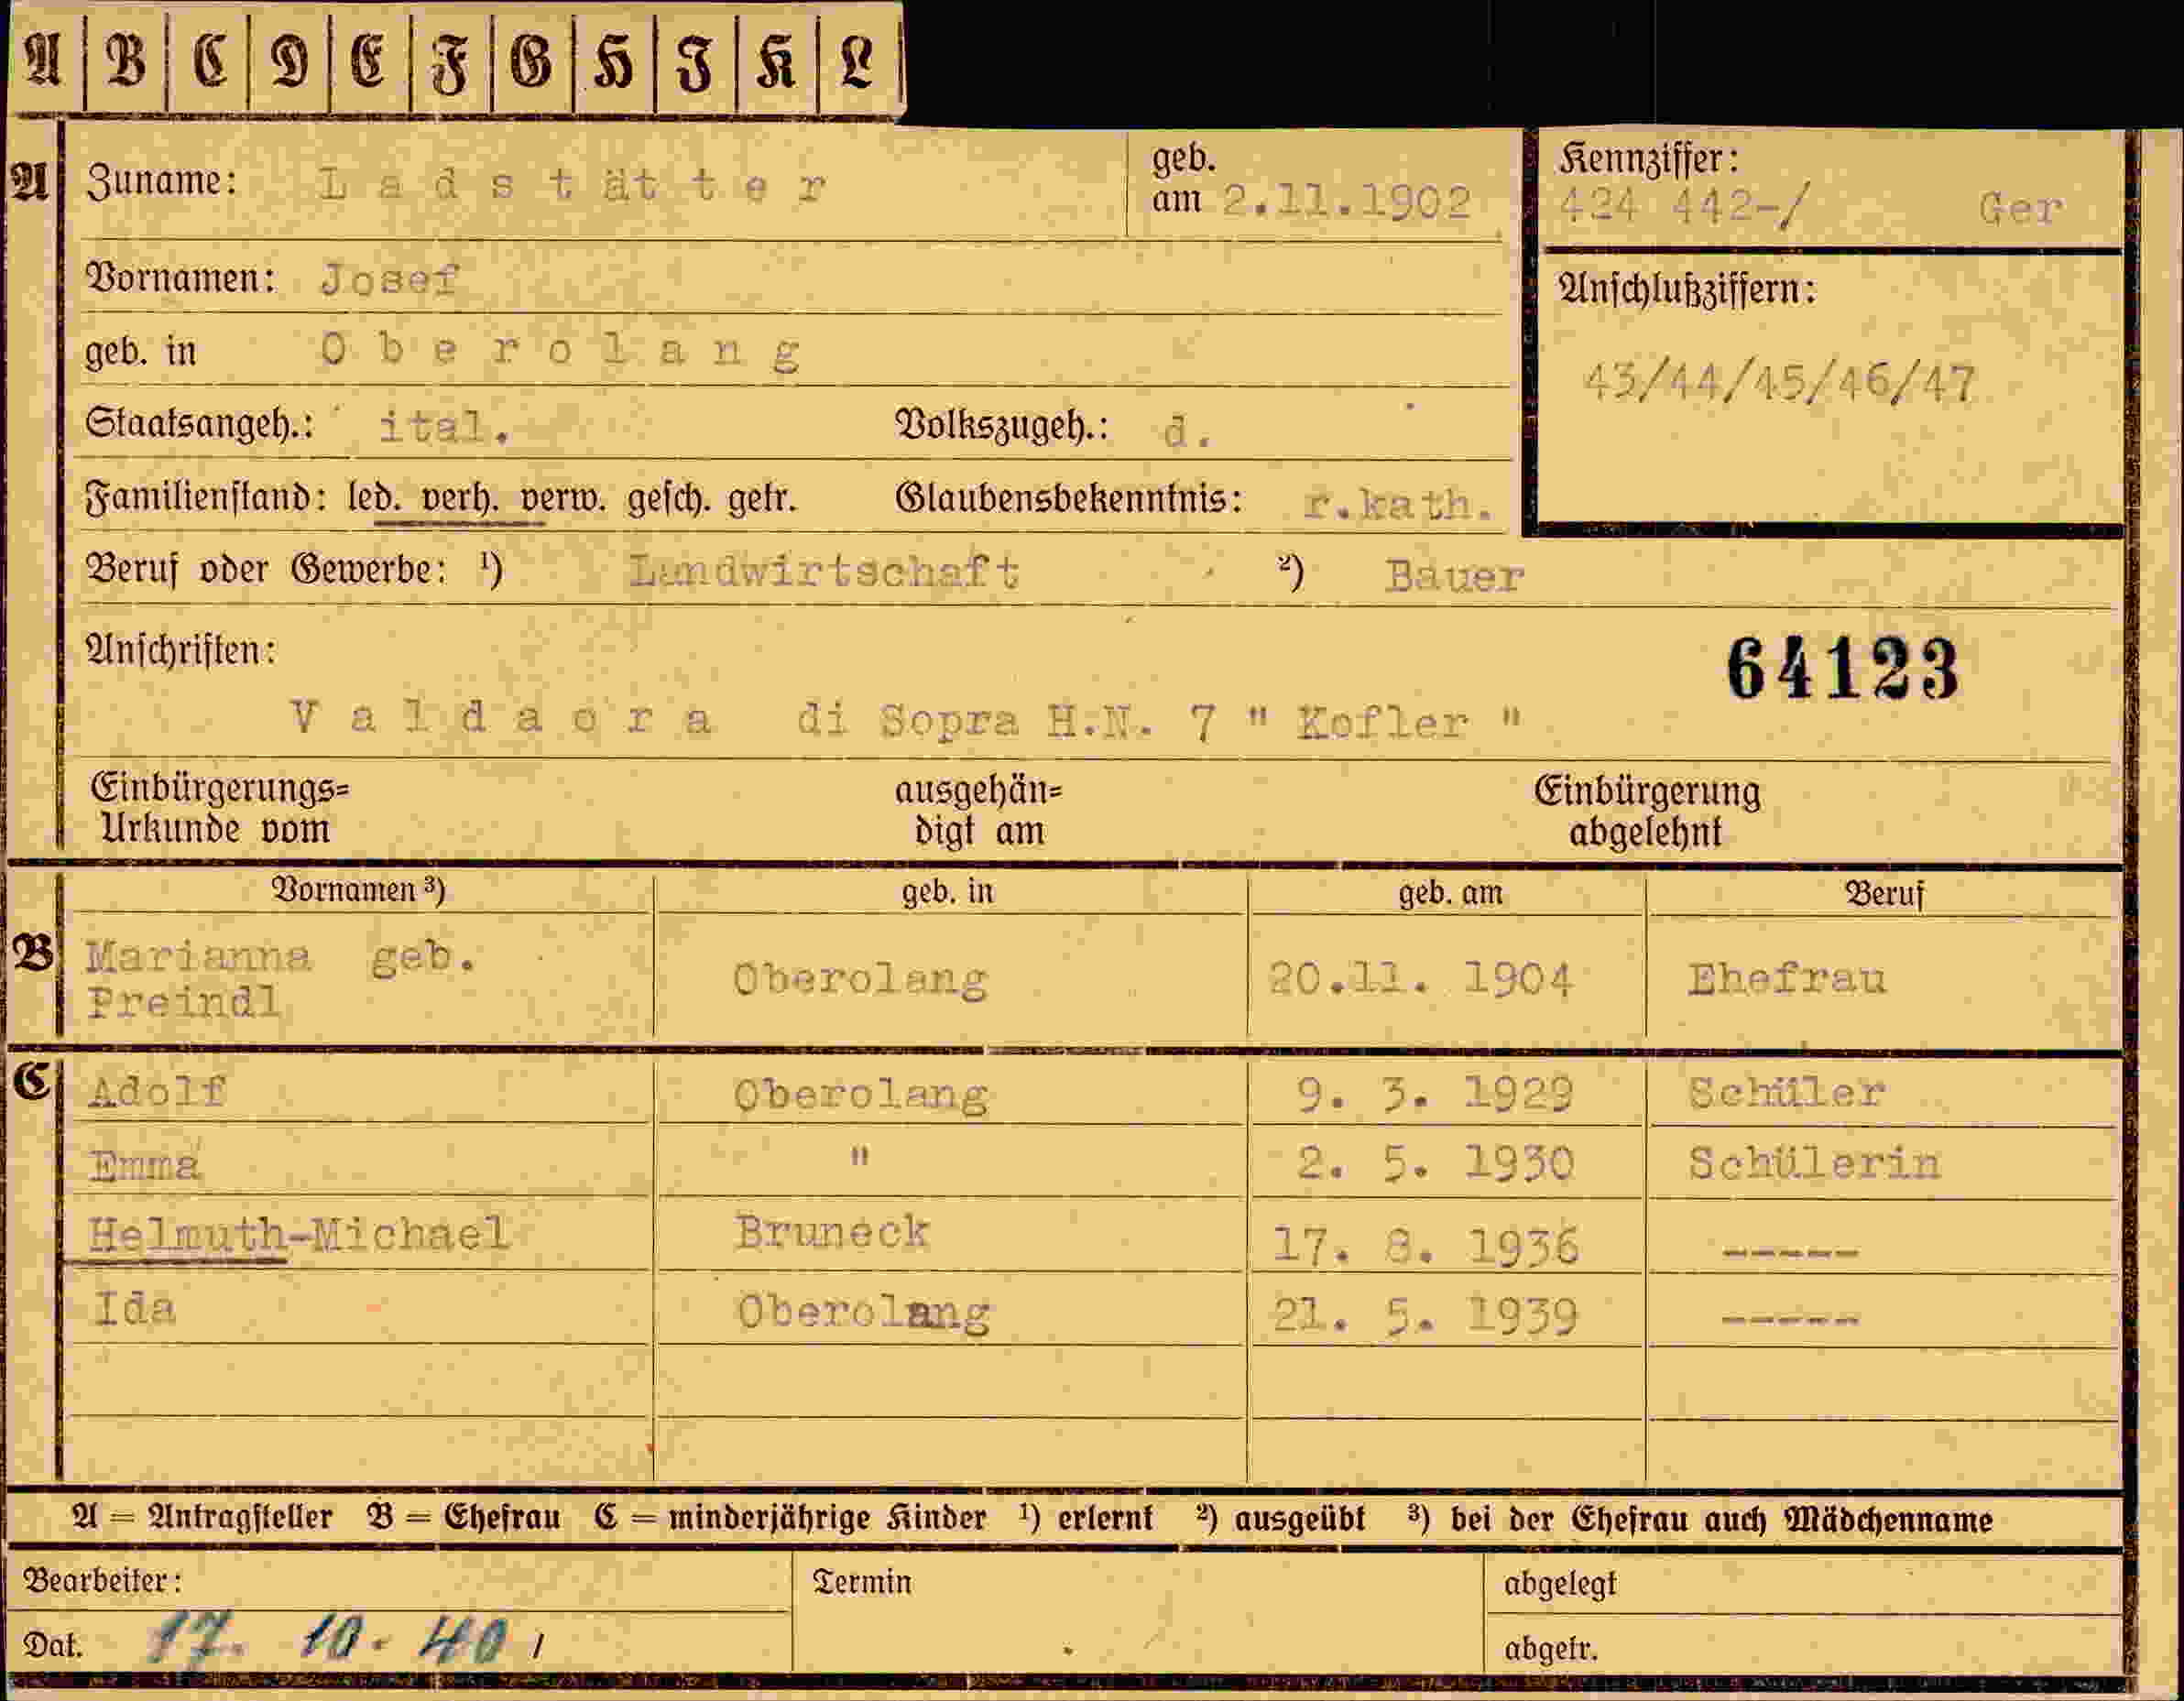 A B C D E F G H I K L
A Zuname: Ladstätter geb. am 2.11.1902 Kennziffer: 424 442-/ Ger
Vornamen: Josef Anschlußziffern:
geb. in Oberolang 43/44/45/46/47
Staatsangeh.: ital. Volkszugeh.: d.
Familienstand: led. verh. verw. gesch. getr. Glaubensbekenntnis: r.kath.
Beruf oder Gewerbe: ¹) Landwirtschaft ²) Bauer
Anschriften: 64123
Valdaora di Sopra H.N. 7 " Kofler "
Einbürgerungs= ausgehän= Einbürgerung
Urkunde vom digt am abgelehnt
Vornamen ³) geb. in geb. am Beruf
B Marianna geb. Preindl Oberolang 20.11. 1904 Ehefrau
C Adolf Oberolang 9. 3. 1929 Schüler
Emma " 2. 5. 1930 Schülerin
Helmuth-Michael Bruneck 17. 8. 1936 -----
Ida Oberolang 21. 5. 1939 -----
A = Antragsteller B = Ehefrau C = minderjährige Kinder ¹) erlernt ²) ausgeübt ³) bei der Ehefrau auch Mädchenname
Bearbeiter: Termin abgelegt
Dat. 17. 10. 40 / abgetr.